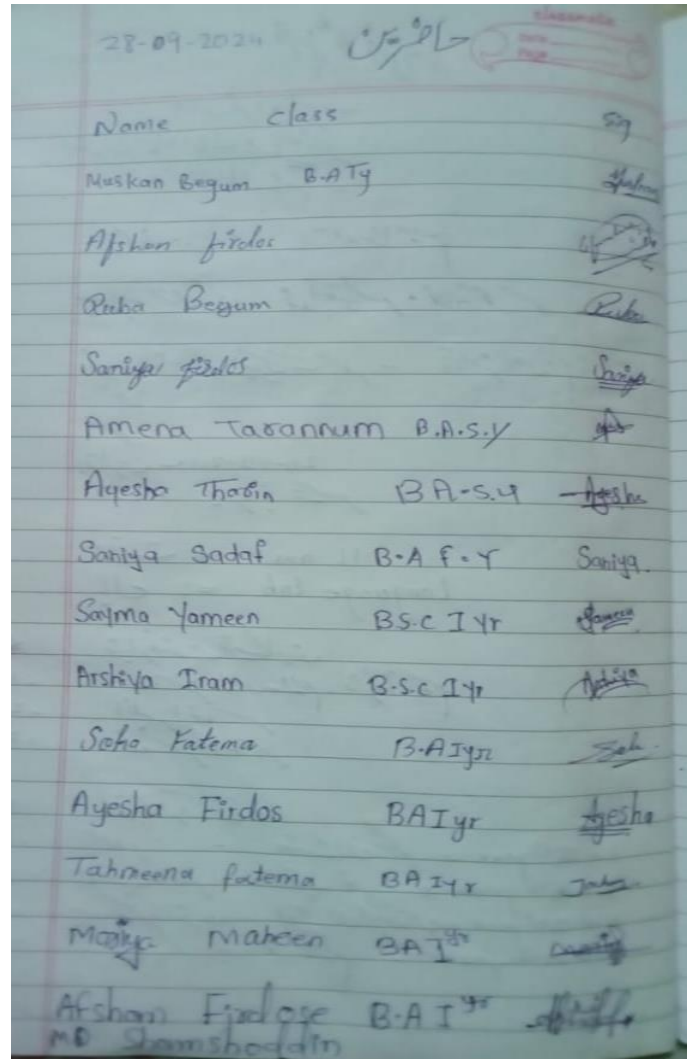 28-09-2024 حاضرین classmate
Date
Page
Name class sig
Muskan Begum B.A Ty
Afshan firdos
Ruba Begum
Saniya firdos Saniya
Amena Tarannum B.A.S.Y
Ayesha Thasin BA-S.Y Ayesha
Saniya Sadaf B.A F.Y Saniya.
Sayma Yameen B.S.C I Yr Yameen
Arshiya Iram B.S.C I Yr Arshiya
Saho Fatema B.A I yr Sah
Ayesha Firdos BA I yr Ayesha
Tahmeena fatema BA I Y r
Maheen BA I yr
Afshan Firdose B.A I yr
MD Shamshoddin